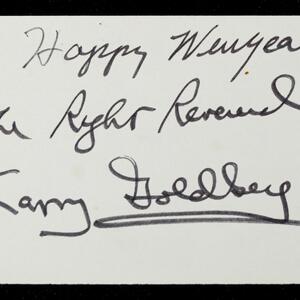 Happy Wenyea
The Right Reverend
Larry Goldberg